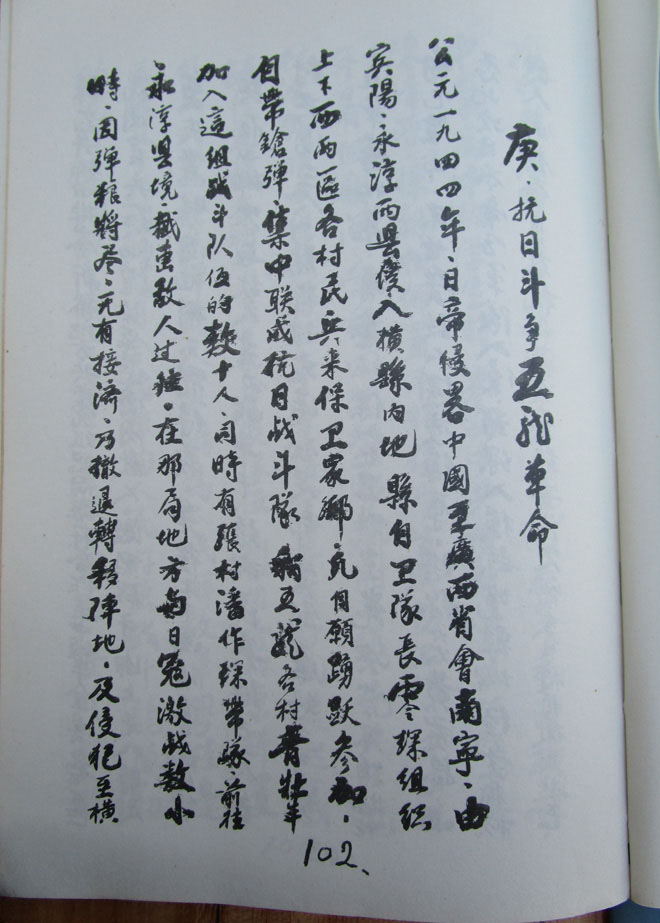 庚、抗日斗争五龙革命
公元一九四四年、日帝侵畧中國至廣西省會南寧、由
宾陽、永淳两县侵入横縣内地縣自卫隊長雷琛组织
上下西两區各村民兵来保卫家鄉、凡自願踴跃参加、
自带鎗弹、集中联成抗日战斗隊五龍各村青壮年
加入這组战斗队伍的数十人、同時有張村潘作琛带隊、前往
永淳县境截击敌人过往、在那局地方与日寇激战数小
時、因弹粮將尽、无有接济、乃撤退轉移陣地、及侵犯至横
102、